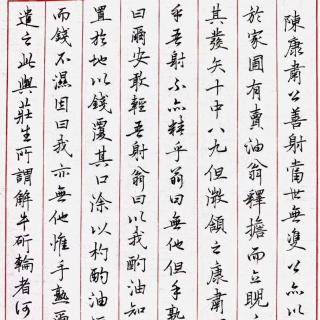 陳康肅公善射當世無雙公亦以
於家圃有賣油翁釋擔而立睨
其發矢十中八九但微頷之康肅
乎吾射不亦精乎翁曰無他但手熟
曰爾安敢輕吾射翁曰以我酌油知
置於地以錢覆其口徐以杓酌油
而錢不濕因曰我亦無他惟手熟
遣之此與莊生所謂解牛斫輪者何